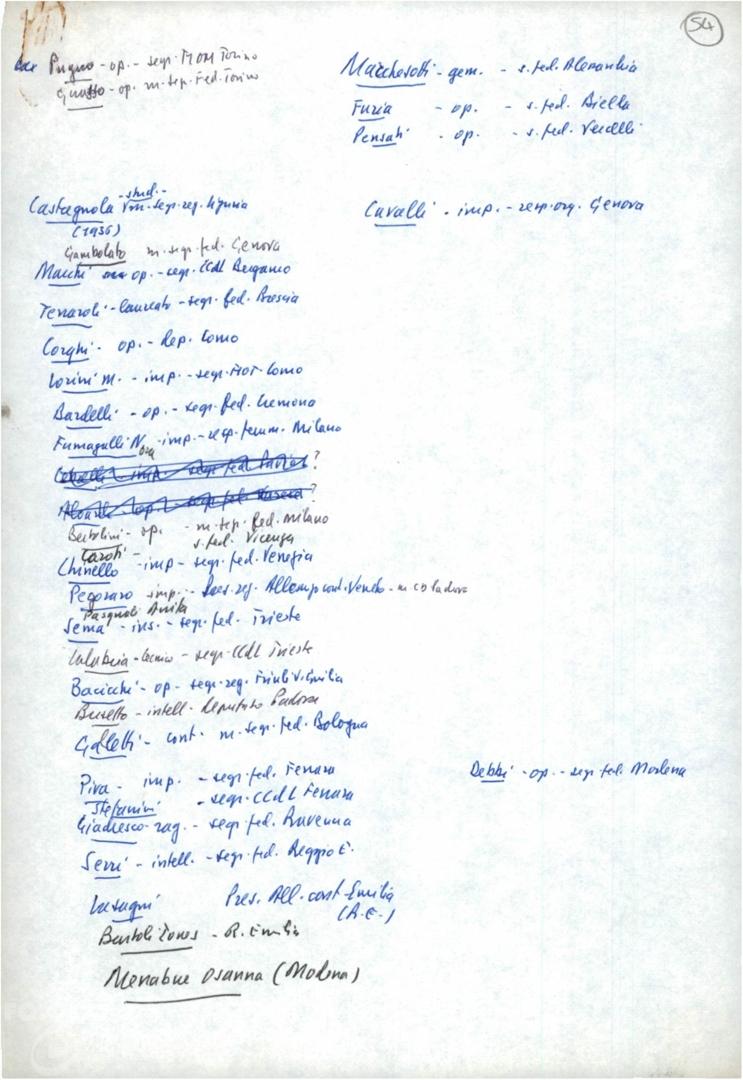 54
Pugno - op. - segr. FIOM Torino
Guasso - op. m. segr. Fed. Torino
Marchesotti - gem. - s. fed. Alessandria
Furia - op. - s. fed. Biella
Pensati - op. - s. fed. Vercelli
- stud. -
Castagnola - segr. reg. Liguria
(1936)
Gambolato m. segr. fed. Genova
Cavalli - imp. - resp. org. Genova
Macchi op. - segr. CCdL Bergamo
Terraroli - laureato - segr. fed. Brescia
Corghi - op. - dep. Como
Lorini M. - imp. - segr. FIOT Como
Bardelli - op. - segr. fed. Cremona
Fumagalli N. - imp. - resp. femm. Milano
Ora
?
?
Bertolini - op. - m. segr. fed. Milano
Caroti - s. fed. Vicenza
Chinello - imp - segr. fed. Venezia
Pegoraro imp. - Pres. reg. Alleanp cont. Veneto - m. CD Padova
Pasquali Anita
Sema - ins. - segr. fed. Trieste
Calabria - tecnico - segr. CCdL Trieste
Bacicchi - op - segr. reg. Friuli V. Giulia
Busetto - intell. deputato Padova
Galletti - cont. m. segr. fed. Bologna
Piva - imp. - segr. fed. Ferrara
Debbi - op. - segr. fed. Modena
Stefanini - segr. CCdL Ferrara
Giadresco - rag. - segr. fed. Ravenna
Serri - intell. - segr. fed. Reggio E.
Lasagni Pres. All. cont. Emilia
(R.E.)
Bartoli Iones - R. Emilia
Menabue Osanna (Modena)